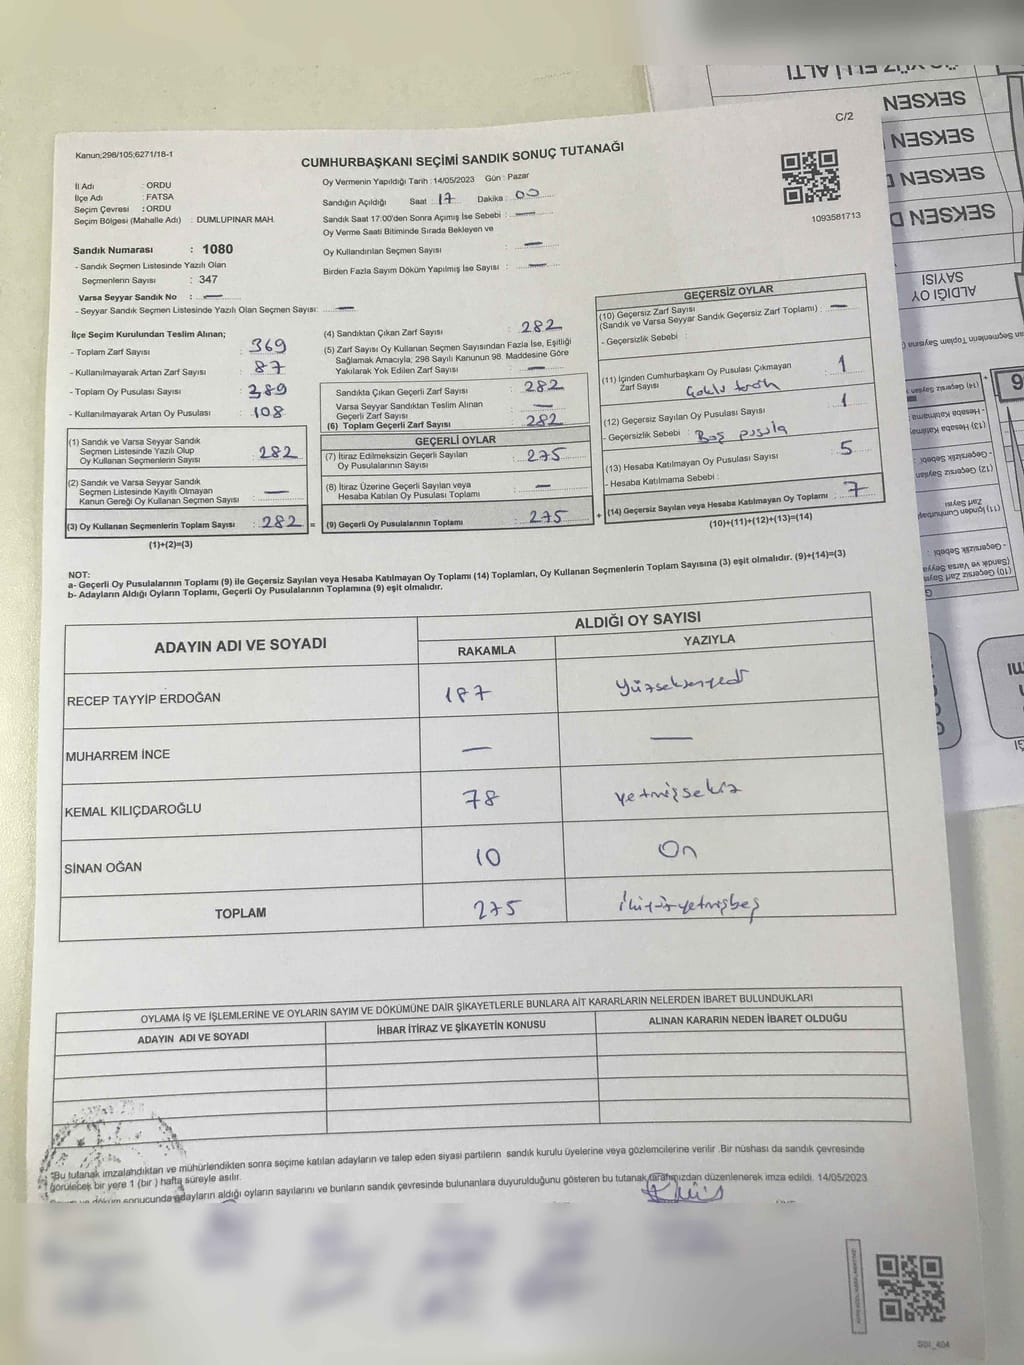 C/2
Kanun;298/105;6271/18-1
CUMHURBAŞKANI SEÇİMİ SANDIK SONUÇ TUTANAĞI
İl Adı : ORDU
İlçe Adı : FATSA
Seçim Çevresi : ORDU
Seçim Bölgesi (Mahalle Adı) : DUMLUPINAR MAH.
Oy Vermenin Yapıldığı Tarih : 14/05/2023 Gün : Pazar
Sandığın Açıldığı Saat : 17 Dakika : 00
Sandık Saat 17:00'den Sonra Açılmış İse Sebebi : —
Oy Verme Saati Bitiminde Sırada Bekleyen ve
Oy Kullandırılan Seçmen Sayısı : —
Birden Fazla Sayım Döküm Yapılmış İse Sayısı : —
1093581713
Sandık Numarası : 1080
- Sandık Seçmen Listesinde Yazılı Olan
Seçmenlerin Sayısı : 347
Varsa Seyyar Sandık No : —
- Seyyar Sandık Seçmen Listesinde Yazılı Olan Seçmen Sayısı: —
İlçe Seçim Kurulundan Teslim Alınan;
- Toplam Zarf Sayısı : 369
- Kullanılmayarak Artan Zarf Sayısı : 87
- Toplam Oy Pusulası Sayısı : 389
- Kullanılmayarak Artan Oy Pusulası : 108
(1) Sandık ve Varsa Seyyar Sandık
Seçmen Listesinde Yazılı Olup
Oy Kullanan Seçmenlerin Sayısı : 282
(2) Sandık ve Varsa Seyyar Sandık
Seçmen Listesinde Kayıtlı Olmayan
Kanun Gereği Oy Kullanan Seçmen Sayısı : —
(3) Oy Kullanan Seçmenlerin Toplam Sayısı : 282 =
(1)+(2)=(3)
(4) Sandıktan Çıkan Zarf Sayısı : 282
(5) Zarf Sayısı Oy Kullanan Seçmen Sayısından Fazla İse, Eşitliği
Sağlamak Amacıyla, 298 Sayılı Kanunun 98. Maddesine Göre
Yakılarak Yok Edilen Zarf Sayısı : —
Sandıkta Çıkan Geçerli Zarf Sayısı : 282
Varsa Seyyar Sandıktan Teslim Alınan
Geçerli Zarf Sayısı : —
(6) Toplam Geçerli Zarf Sayısı : 282
GEÇERLİ OYLAR
(7) İtiraz Edilmeksizin Geçerli Sayılan
Oy Pusulalarının Sayısı : 275
(8) İtiraz Üzerine Geçerli Sayılan veya
Hesaba Katılan Oy Pusulası Toplamı : —
(9) Geçerli Oy Pusulalarının Toplamı : 275 +
GEÇERSİZ OYLAR
(10) Geçersiz Zarf Sayısı
(Sandık ve Varsa Seyyar Sandık Geçersiz Zarf Toplamı) : —
- Geçersizlik Sebebi :
(11) İçinden Cumhurbaşkanı Oy Pusulası Çıkmayan
Zarf Sayısı : 1
(12) Geçersiz Sayılan Oy Pusulası Sayısı : 1
- Geçersizlik Sebebi : Boş pusula
(13) Hesaba Katılmayan Oy Pusulası Sayısı : 5
- Hesaba Katılmama Sebebi :
(14) Geçersiz Sayılan veya Hesaba Katılmayan Oy Toplamı : 7
(10)+(11)+(12)+(13)=(14)
NOT:
a- Geçerli Oy Pusulalarının Toplamı (9) ile Geçersiz Sayılan veya Hesaba Katılmayan Oy Toplamı (14) Toplamları, Oy Kullanan Seçmenlerin Toplam Sayısına (3) eşit olmalıdır. (9)+(14)=(3)
b- Adayların Aldığı Oyların Toplamı, Geçerli Oy Pusulalarının Toplamına (9) eşit olmalıdır.
ADAYIN ADI VE SOYADI
ALDIĞI OY SAYISI
RAKAMLA YAZIYLA
RECEP TAYYİP ERDOĞAN 187 Yüzseksenyedi
MUHARREM İNCE — —
KEMAL KILIÇDAROĞLU 78 yetmişsekiz
SİNAN OĞAN 10 On
TOPLAM 275 ikiyüzyetmişbeş
OYLAMA İŞ VE İŞLEMLERİNE VE OYLARIN SAYIM VE DÖKÜMÜNE DAİR ŞİKAYETLERLE BUNLARA AİT KARARLARIN NELERDEN İBARET BULUNDUKLARI
ADAYIN ADI VE SOYADI İHBAR İTİRAZ VE ŞİKAYETİN KONUSU ALINAN KARARIN NEDEN İBARET OLDUĞU
"Bu tutanak imzalandıktan ve mühürlendikten sonra seçime katılan adayların ve talep eden siyasi partilerin sandık kurulu üyelerine veya gözlemcilerine verilir .Bir nüshası da sandık çevresinde
görülecek bir yere 1 (bir ) hafta süreyle asılır.
sonucunda adayların aldığı oyların sayılarını ve bunların sandık çevresinde bulunanlara duyurulduğunu gösteren bu tutanak tarafımızdan düzenlenerek imza edildi. 14/05/2023
SEKSEN
SEKSEN
SEKSEN
SEKSEN
ALDIĞI OY
SAYISI
9